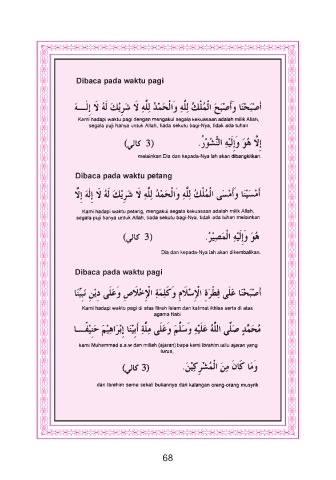 Dibaca pada waktu pagi
أَصْبَحْنَا وَأَصْبَحَ الْمُلْكُ لِلَّهِ وَالْحَمْدُ لِلَّهِ لَا شَرِيْكَ لَهُ لَا إِلَـٰـهَ
Kami hadapi waktu pagi dengan mengakui segala kekuasaan adalah milik Allah,
segala puji hanya untuk Allah, tiada sekutu bagi-Nya, tiada ada tuhan
إِلَّا هُوَ وَإِلَيْهِ النُّشُوْرُ. (3 كالي)
melainkan Dia dan kepada-Nya lah akan dibangkitkan.
Dibaca pada waktu petang
أَمْسَيْنَا وَأَمْسَى الْمُلْكُ لِلَّهِ وَالْحَمْدُ لِلَّهِ لَا شَرِيْكَ لَهُ لَا إِلَهَ إِلَّا
Kami hadapi waktu petang, mengakui segala kekuasaan adalah milik Allah,
segala puji hanya untuk Allah, tiada sekutu bagi-Nya, tidak ada tuhan melainkan
هُوَ وَإِلَيْهِ الْمَصِيْرُ. (3 كالي)
Dia dan kepada-Nya lah akan dikembalikan.
Dibaca pada waktu pagi
أَصْبَحْنَا عَلَى فِطْرَةِ الْإِسْلَامِ وَكَلِمَةِ الْإِخْلَاصِ وَعَلَى دِيْنِ نَبِيِّنَا
Kami hadapi waktu pagi di atas fitrah Islam dan kalimat ikhlas serta di atas
agama Nabi
مُحَمَّدٍ صَلَّى اللَّهُ عَلَيْهِ وَسَلَّمَ وَعَلَى مِلَّةِ أَبِيْنَا إِبْرَاهِيْمَ حَنِيْفًــا
kami Muhammad s.a.w dan millah (ajaran) bapa kami Ibrahim iaitu ajaran yang
lurus,
وَمَا كَانَ مِنَ الْمُشْرِكِيْنَ. (3 كالي)
dan Ibrahim sama sekali bukannya dari kalangan orang-orang musyrik.
68